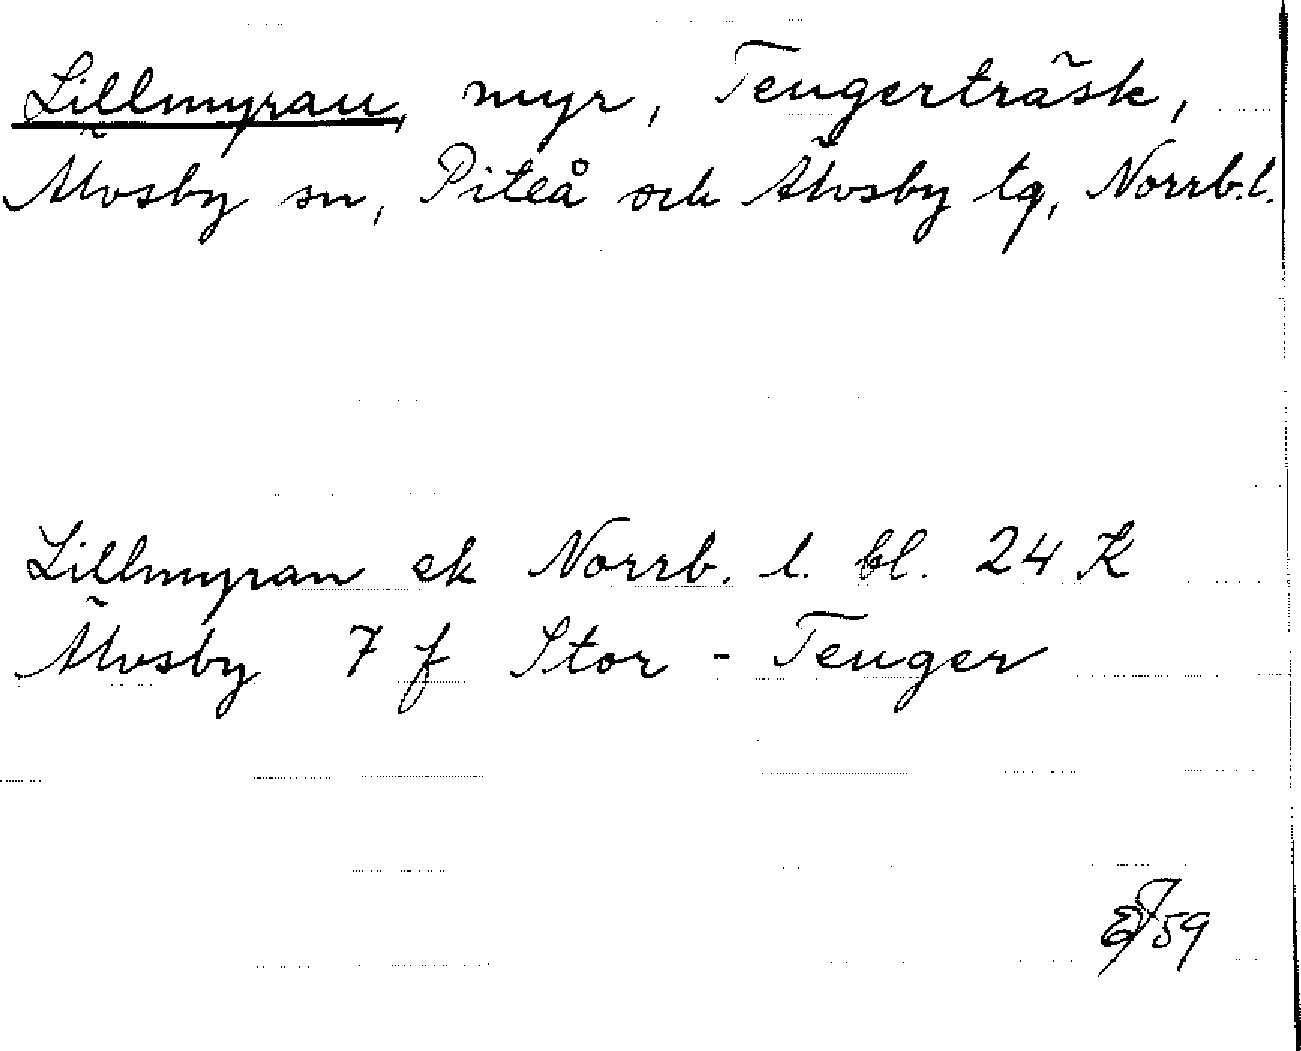 Lillmyran, myr, Teugerträsk,
Älvsby sn, Piteå och Älvsby tg, Norrb.l.
Lillmyran ek Norrb. l. bl. 24 K
Älvsby 7 f Stor-Teuger
59